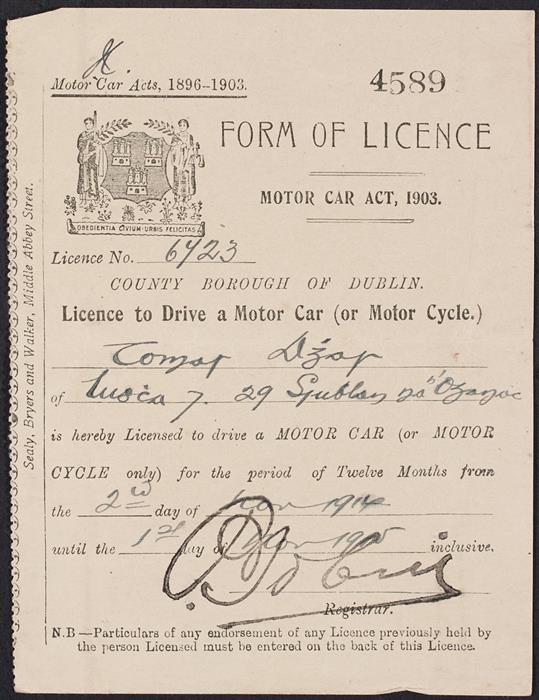 Motor Car Acts, 1896-1903.
4589
FORM OF LICENCE
MOTOR CAR ACT, 1903.
OBEDIENTIA CIVIUM URBIS FELICITAS
Licence No. 6423
COUNTY BOROUGH OF DUBLIN.
Licence to Drive a Motor Car (or Motor Cycle.)
of 29
is hereby Licensed to drive a MOTOR CAR (or MOTOR
CYCLE only) for the period of Twelve Months from
the 2nd day of Nov 1914
until the 1st day of Nov 1915 inclusive.
Registrar.
N.B —Particulars of any endorsement of any Licence previously held by
the person Licensed must be entered on the back of this Licence.
Sealy, Bryers and Walker, Middle Abbey Street.